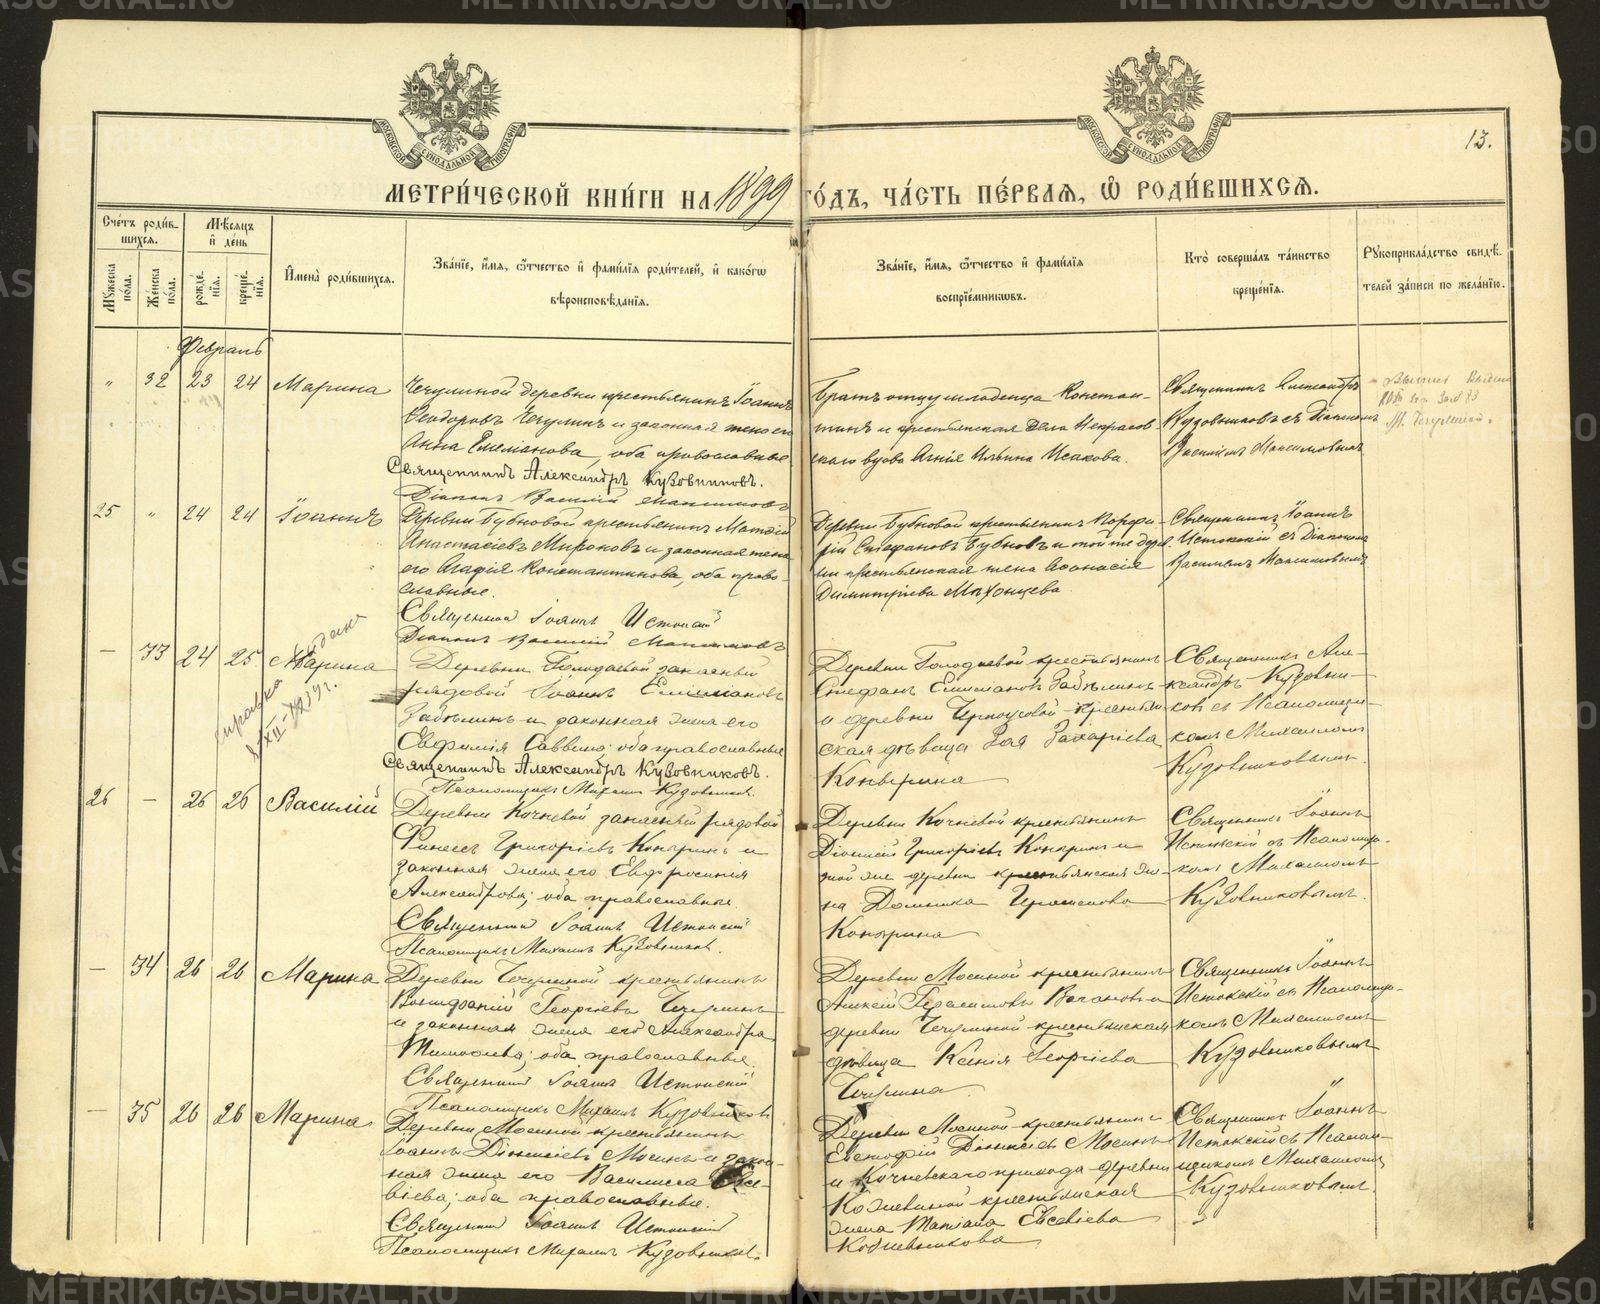 METRIKI.GASO-URAL.RU
МОСКОВСКОЙ СѴНОДАЛЬНОЙ ТИПОГРАФІИ
МОСКОВСКОЙ СѴНОДАЛЬНОЙ ТИПОГРАФІИ
13.
МЕТРИ́ЧЕСКОЙ КНИ́ГИ НА 1899 ГО́ДЪ, ЧА́СТЬ ПЕ́РВАЯ, Ѡ҆ РОДИ́ВШИХСЯ.
Сче́тъ роди́в-
шихся.
Му́жеска по́ла.
Же́нска по́ла.
Мѣ́сяцъ
и҆ де́нь
рожде́нїя.
креще́нїя.
И҆мена̀ роди́вшихся.
Зва́нїе, и҆́мя, ѻ҆́тчество и҆ фами́лїя роди́телей, и҆ како́гѡ
вѣроисповѣ́данїя.
Зва́нїе, и҆́мя, ѻ҆́тчество и҆ фами́лїя
воспрїе́мниковъ.
Кто̀ соверша́лъ та́инство
креще́нїя.
Рꙋкоприкла́дство свидѣ́-
телей за́писи по жела́нїю.
Февраль
" 32 23 24 Марина
Чечулиной деревни крестьянинъ Іоаннъ
Ѳеодоровъ Чечулинъ и законная жена его
Анна Емеліанова, оба православные
Священникъ Александръ Кузовниковъ.
Діаконъ Василій
Братъ отцу младенца Констан-
тинъ и крестьянская Некрасов-
скаго вдова Агнія Ильина Исакова.
Священникъ Александръ
Кузовниковъ съ Діакономъ
Василіемъ
25 " 24 24 Іоаннъ
Деревни Бубновой крестьянинъ Матѳій
Анастасіевъ Мироновъ и законная жена
его Агафія Константинова, оба право-
славные.
Священникъ Іоаннъ Истокскій
Діаконъ Василій
Деревни Бубновой крестьянинъ Порфи-
рій Стефановъ Бубновъ и той же дерев-
ни крестьянская жена Аѳанасія
Димитріева Мѣхонцева.
Священникъ Іоаннъ
Истокскій съ Діакономъ
Василіемъ
— 33 24 25 Марина
справка выдана
Деревни Голодаевой запасный
рядовой Іоаннъ Емиліановъ
Забѣлинъ и законная жена его
Евфимія Саввина; оба православные
Священникъ Александръ Кузовниковъ.
Псаломщикъ Михаилъ Кузовников.
Деревни Голодаевой крестьянинъ
Стефанъ Емиліановъ Забѣлинъ
и деревни крестьян-
ская дѣвица Зоя Захаріева
Конверина
Священникъ Але-
ксандръ Кузовни-
ковъ съ Псаломщи-
комъ Михаиломъ
Кузовниковымъ.
26 — 26 26 Василій
Деревни Кочневой запасный рядовой
Григоріевъ и
законная жена его Евфросинія
Александрова; оба православные
Священникъ Іоаннъ Истокскій
Псаломщикъ Михаилъ Кузовников.
Деревни Кочневой крестьянинъ
Діонисій Григоріевъ и
той же деревни крестьянская же-
на Домника Герасимова
Священникъ Іоаннъ
Истокскій съ Псаломщи-
комъ Михаиломъ
Кузовниковымъ.
— 34 26 26 Марина
Деревни Чечулиной крестьянинъ
Вонифатій Георгіевъ Чечулинъ
и законная жена его Александра
Тимоѳеева; оба православные.
Священникъ Іоаннъ Истокскій
Псаломщикъ Михаилъ Кузовниковъ
Деревни Мосиной крестьянинъ
Алексій Герасимовъ Вагановъ и
деревни Чечулиной крестьянская
дѣвица Ксенія Георгіева
Чечулина
Священникъ Іоаннъ
Истокскій съ Псаломщи-
комъ Михаиломъ
Кузовниковымъ
— 35 26 26 Марина
Деревни Мосиной крестьянинъ
Іоаннъ Діонисіевъ Мосинъ и закон-
ная жена его Василисса Евсе-
віева; оба православные.
Священникъ Іоаннъ Истокскій
Псаломщикъ Михаилъ Кузовников.
Деревни Мосиной крестьянинъ
Евстафій Діонисіевъ Мосинъ
и Кочневскаго прихода деревни
Кожевиной крестьянская
жена Татіана Евсевіева
Кожевникова
Священникъ Іоаннъ
Истокскій съ Псалом-
щикомъ Михаиломъ
Кузовниковымъ.